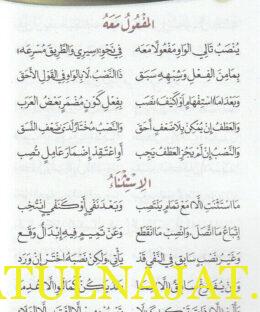 المَفْعُولُ مَعَهُ
يُنْصَبُ تَالِي الوَاوِ مَفْعُولًا مَعَهْ فِي نَحْوِ «سِيرِي وَالطَّرِيقَ مُسْرِعَهْ»
بِمَا مِنَ الفِعْلِ وَشِبْهِهِ سَبَقْ ذَا النَّصْبُ لَا بِالوَاوِ فِي القَوْلِ الأَحَقّْ
وَبَعْدَ مَا اسْتِفْهَامٍ أَوْ كَيْفَ نَصَبْ بِفِعْلِ كَوْنٍ مُضْمَرٍ بَعْضُ العَرَبْ
وَالعَطْفُ إِنْ يُمْكِنْ بِلَا ضَعْفٍ أَحَقّْ وَالنَّصْبُ مُخْتَارٌ لَدَى ضَعْفِ النَّسَقْ
وَالنَّصْبُ إِنْ لَمْ يَجُزِ العَطْفُ يَجِبْ أَوِ اعْتَقِدْ إِضْمَارَ عَامِلٍ تُصِبْ
الِاسْتِثْنَاءُ
مَا اسْتَثْنَتِ الَّا مَعْ تَمَامٍ يَنْتَصِبْ وَبَعْدَ نَفْيٍ أَوْ كَنَفْيٍ انْتُخِبْ
إِتْبَاعُ مَا اتَّصَلَ، وَانْصِبْ مَا انْقَطَعْ وَعَنْ تَمِيمٍ فِيهِ إِبْدَالٌ وَقَعْ
وَغَيْرُ نَصْبِ سَابِقٍ فِي النَّفْيِ قَدْ يَأْتِي، وَلَكِنْ نَصْبَهُ اخْتَرْ إِنْ وَرَدْ
ATULNAJAT.